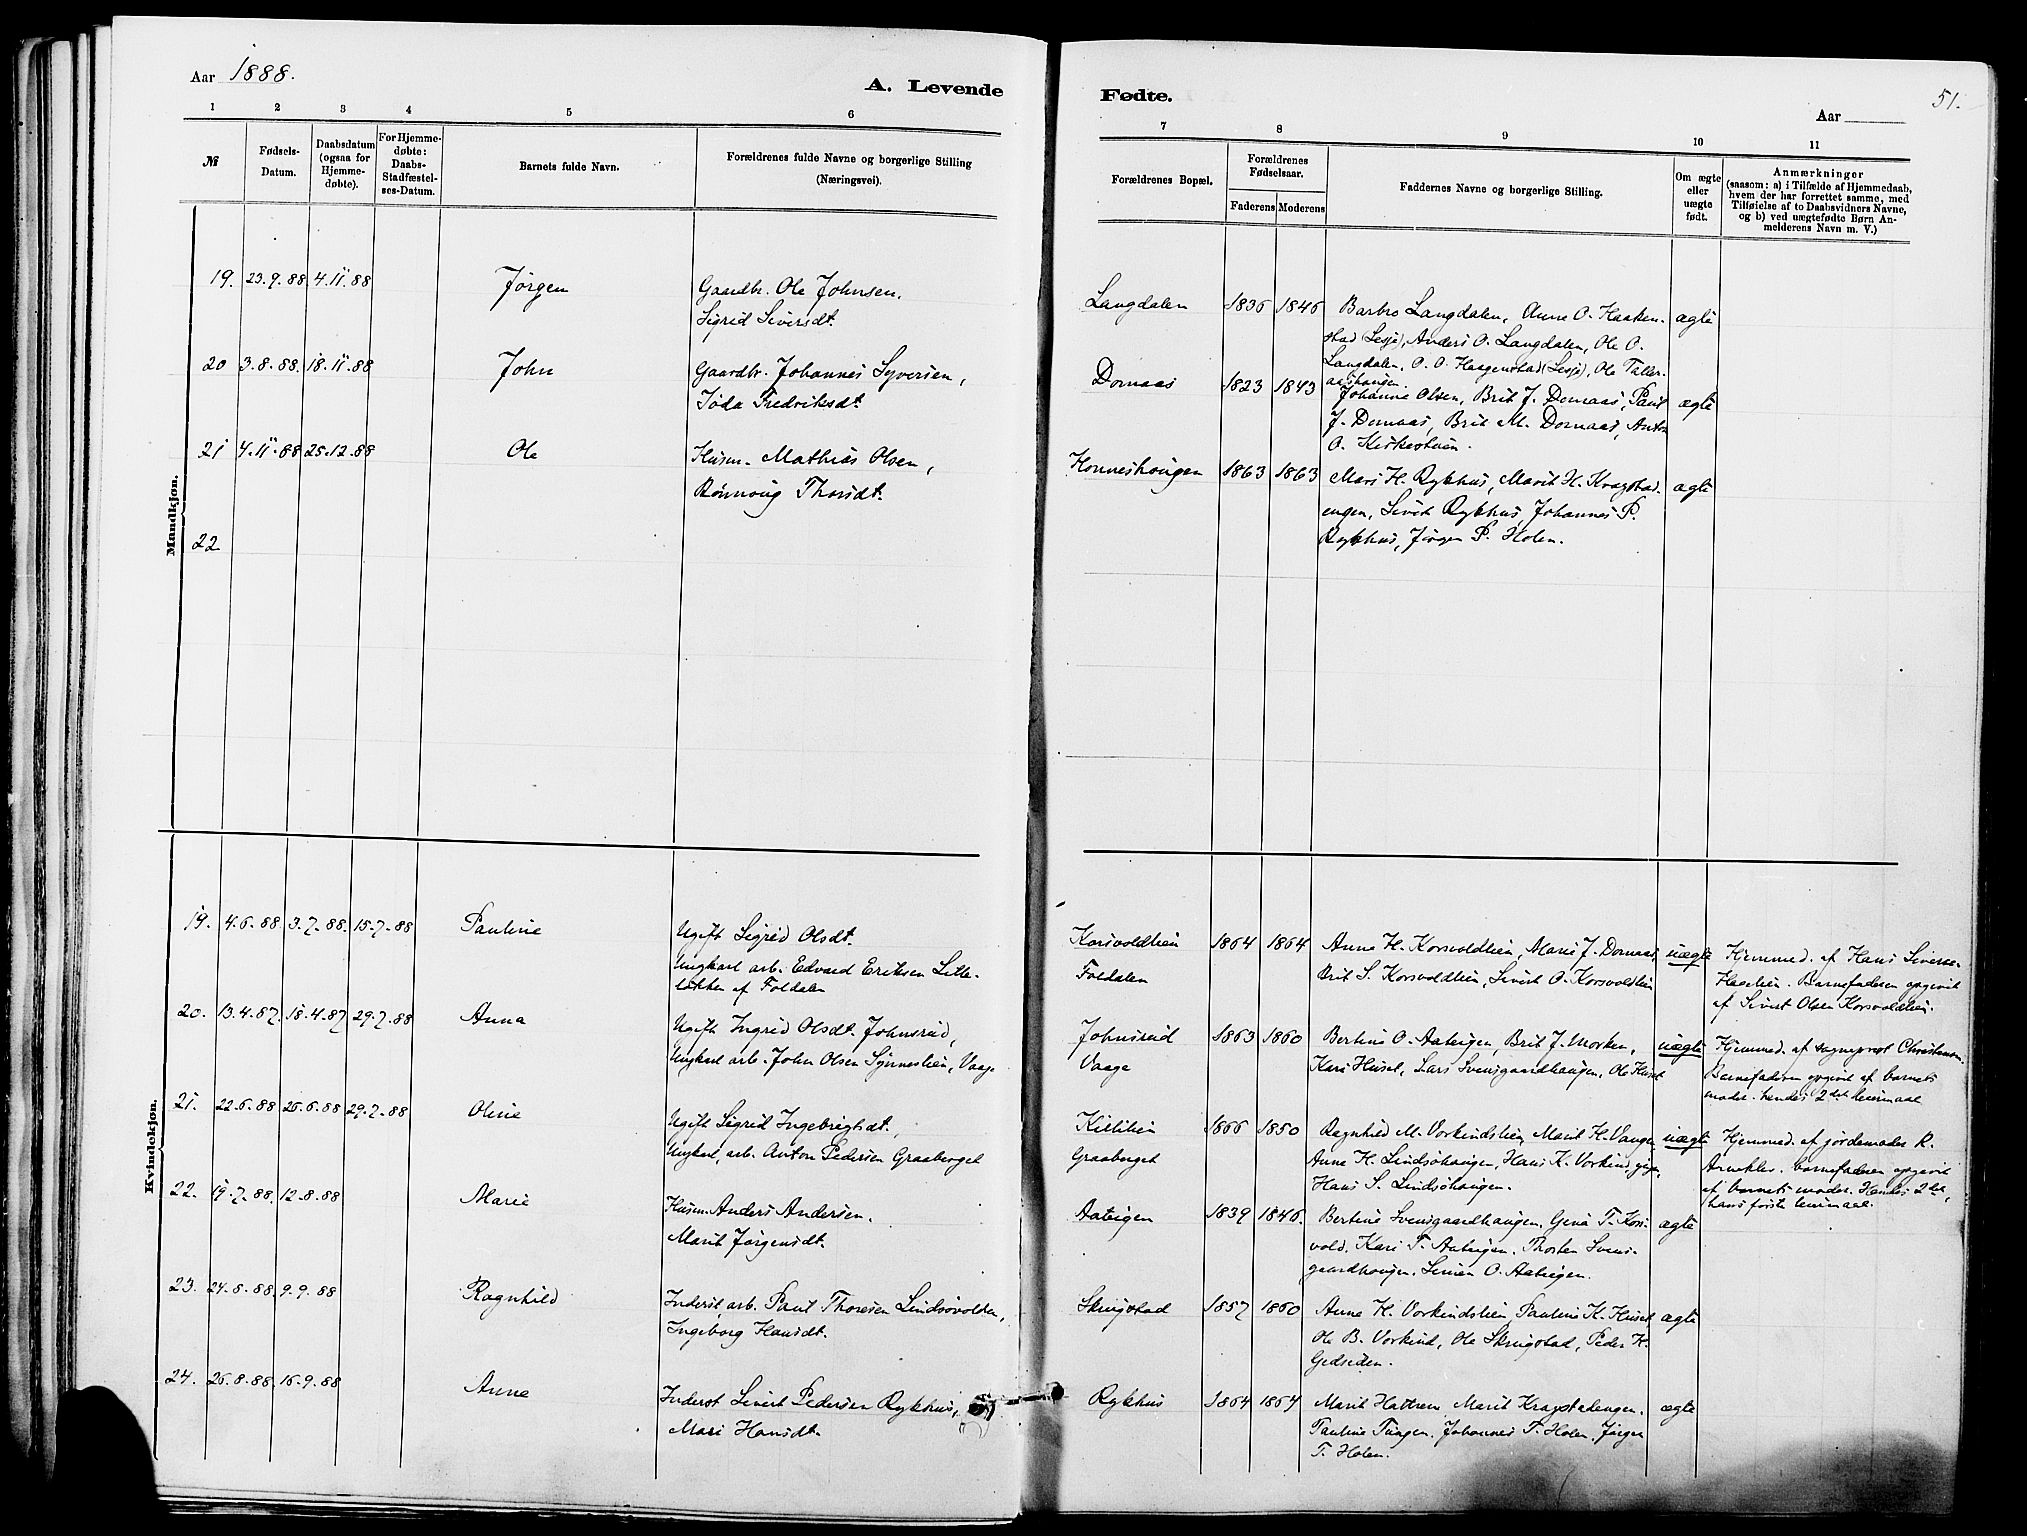 Aar 1888.
A. Levende
1 2 3 4 5 6
№
Fødsels-
Datum.
Daabsdatum
(ogsaa for
Hjemme-
døbte).
For Hjemme-
døbte:
Daabs-
Stadfæstel-
ses-Datum.
Barnets fulde Navn.
Forældrenes fulde Navne og borgerlige Stilling
(Næringsvei).
Mandkjøn.
19. 23.9.88 4.11.88 Jørgen Gaardbr. Ole Johnsen.
Sigrid Siversdt.
20 3.8.88. 18.11.88 John Gaardbr. Johannes Syversen,
Jøda Fredriksdt.
21 4.11.88 25.12.88 Ole Husm. Mathias Olsen,
Rønnoug Thorsdt.
22
Kvindekjøn.
19. 4.6.88 3.7.88. 15.7.88 Pauline Ugift Sigrid Olsdt.
Ungkarl arb. Edvard Eriksen Lille-
løkken af Foldalen
20. 13.4.87. 18.4.87 29.7.88 Anna Ugift Ingrid Olsdt. Johnsrud,
Ungkarl arb. John Olsen Synneslien, Vaage
21. 22.6.88 26.6.88 29.7.88 Oline Ugift Sigrid Ingebrigtsdt.,
Ungkarl, arb. Anton Pedersen Graaberget
22. 19.7.88. 12.8.88 Marie Husm. Anders Andersen.
Marit Jørgensdt.
23. 24.8.88. 9.9.88 Ragnhild Inderst, arb. Paul Thoresen Lindsøvolden,
Ingeborg Hansdt.
24. 26.8.88. 16.9.88 Anne Inderst Sivert Pedersen Rykhus,
Mari Hansdt.
Fødte.
51.
Aar
7 8 9 10 11
Forældrenes Bopæl.
Forældrenes
Fødselsaar.
Faderens Moderens
Faddernes Navne og borgerlige Stilling.
Om ægte
eller
uægte
født.
Anmærkninger
(saasom: a) i Tilfælde af Hjemmedaab,
hvem der har forrettet samme, med
Tilføielse af to Daabsvidners Navne,
og b) ved uægtefødte Børn An-
melderens Navn m. V.)
Langdalen 1836 1846 Barbro Langdalen, Anne O. Haaken- ægte
stad (Lesje), Anders O. Langdalen, Ole O.
Langdalen, O. O. Haagenstad (Lesje), Ole Taller-
aashaugen.
Dornaas 1823 1843 Johanne Olsen, Brit J. Dornaas, Paul ægte
J. Dornaas, Brit M. Dornaas, Anton
O. Kirkestuen.
Konneshougen 1863 1863 Mari H. Rykhus, Marit H. Kragstad- ægte
engen, Sivert Rykhus, Johannes P.
Rykhus, Jørgen P. Holen.
Korsvoldlien 1864 1864 Anne H. Korsvoldlien, Mari J. Dornaas, uægte Hjemmed. af Hans Siverse-
Foldalen Brit S. Korsvoldlien, Sivert O. Korsvoldlien Haaelien. Barnefaderen opgivet
af Sivert Olsen Korsvoldlien.
Johnsrud 1863 1860 Bertine O. Aateigen, Brit J. Morken, uægte Hjemmed. af sogneprest Christensen.
Vaage Kari Huset, Lars Svensgaardhaugen, Ole Huset Barnefaderen opgivet af barnets
moder. hendes 2det leiermaal
Killilien 1866 1850 Ragnhild M. Vorkindslien, Marit H. Vangen uægte Hjemmed. af jordemoder R.
Graaberget Anne H. Lindsøhaugen, Hans K. Vorkind,
Hans S. Lindsøhaugen. barnefaderen opgivet
af barnets moder. Hendes 2det,
hans første leiermaal.
Aateigen 1839 1846. Bertine Svensgaardhaugen, Gina T. Kors- ægte
vold, Kari T. Aateigen, Thosten Svens-
gaardhougen. Simen O. Aateigen.
Skrugstad 1857 1860 Anne H. Vorkindslien, Pauline K. Huset, ægte
Ole B. Vorkind, Ole Skrugstad, Peder K.
Gedseiden.
Rykhus 1864 1864 Marit Hattrem Marit Kragstadengen. ægte
Pauline Tingen. Johannes T. Holen. Jørgen
T. Holen.